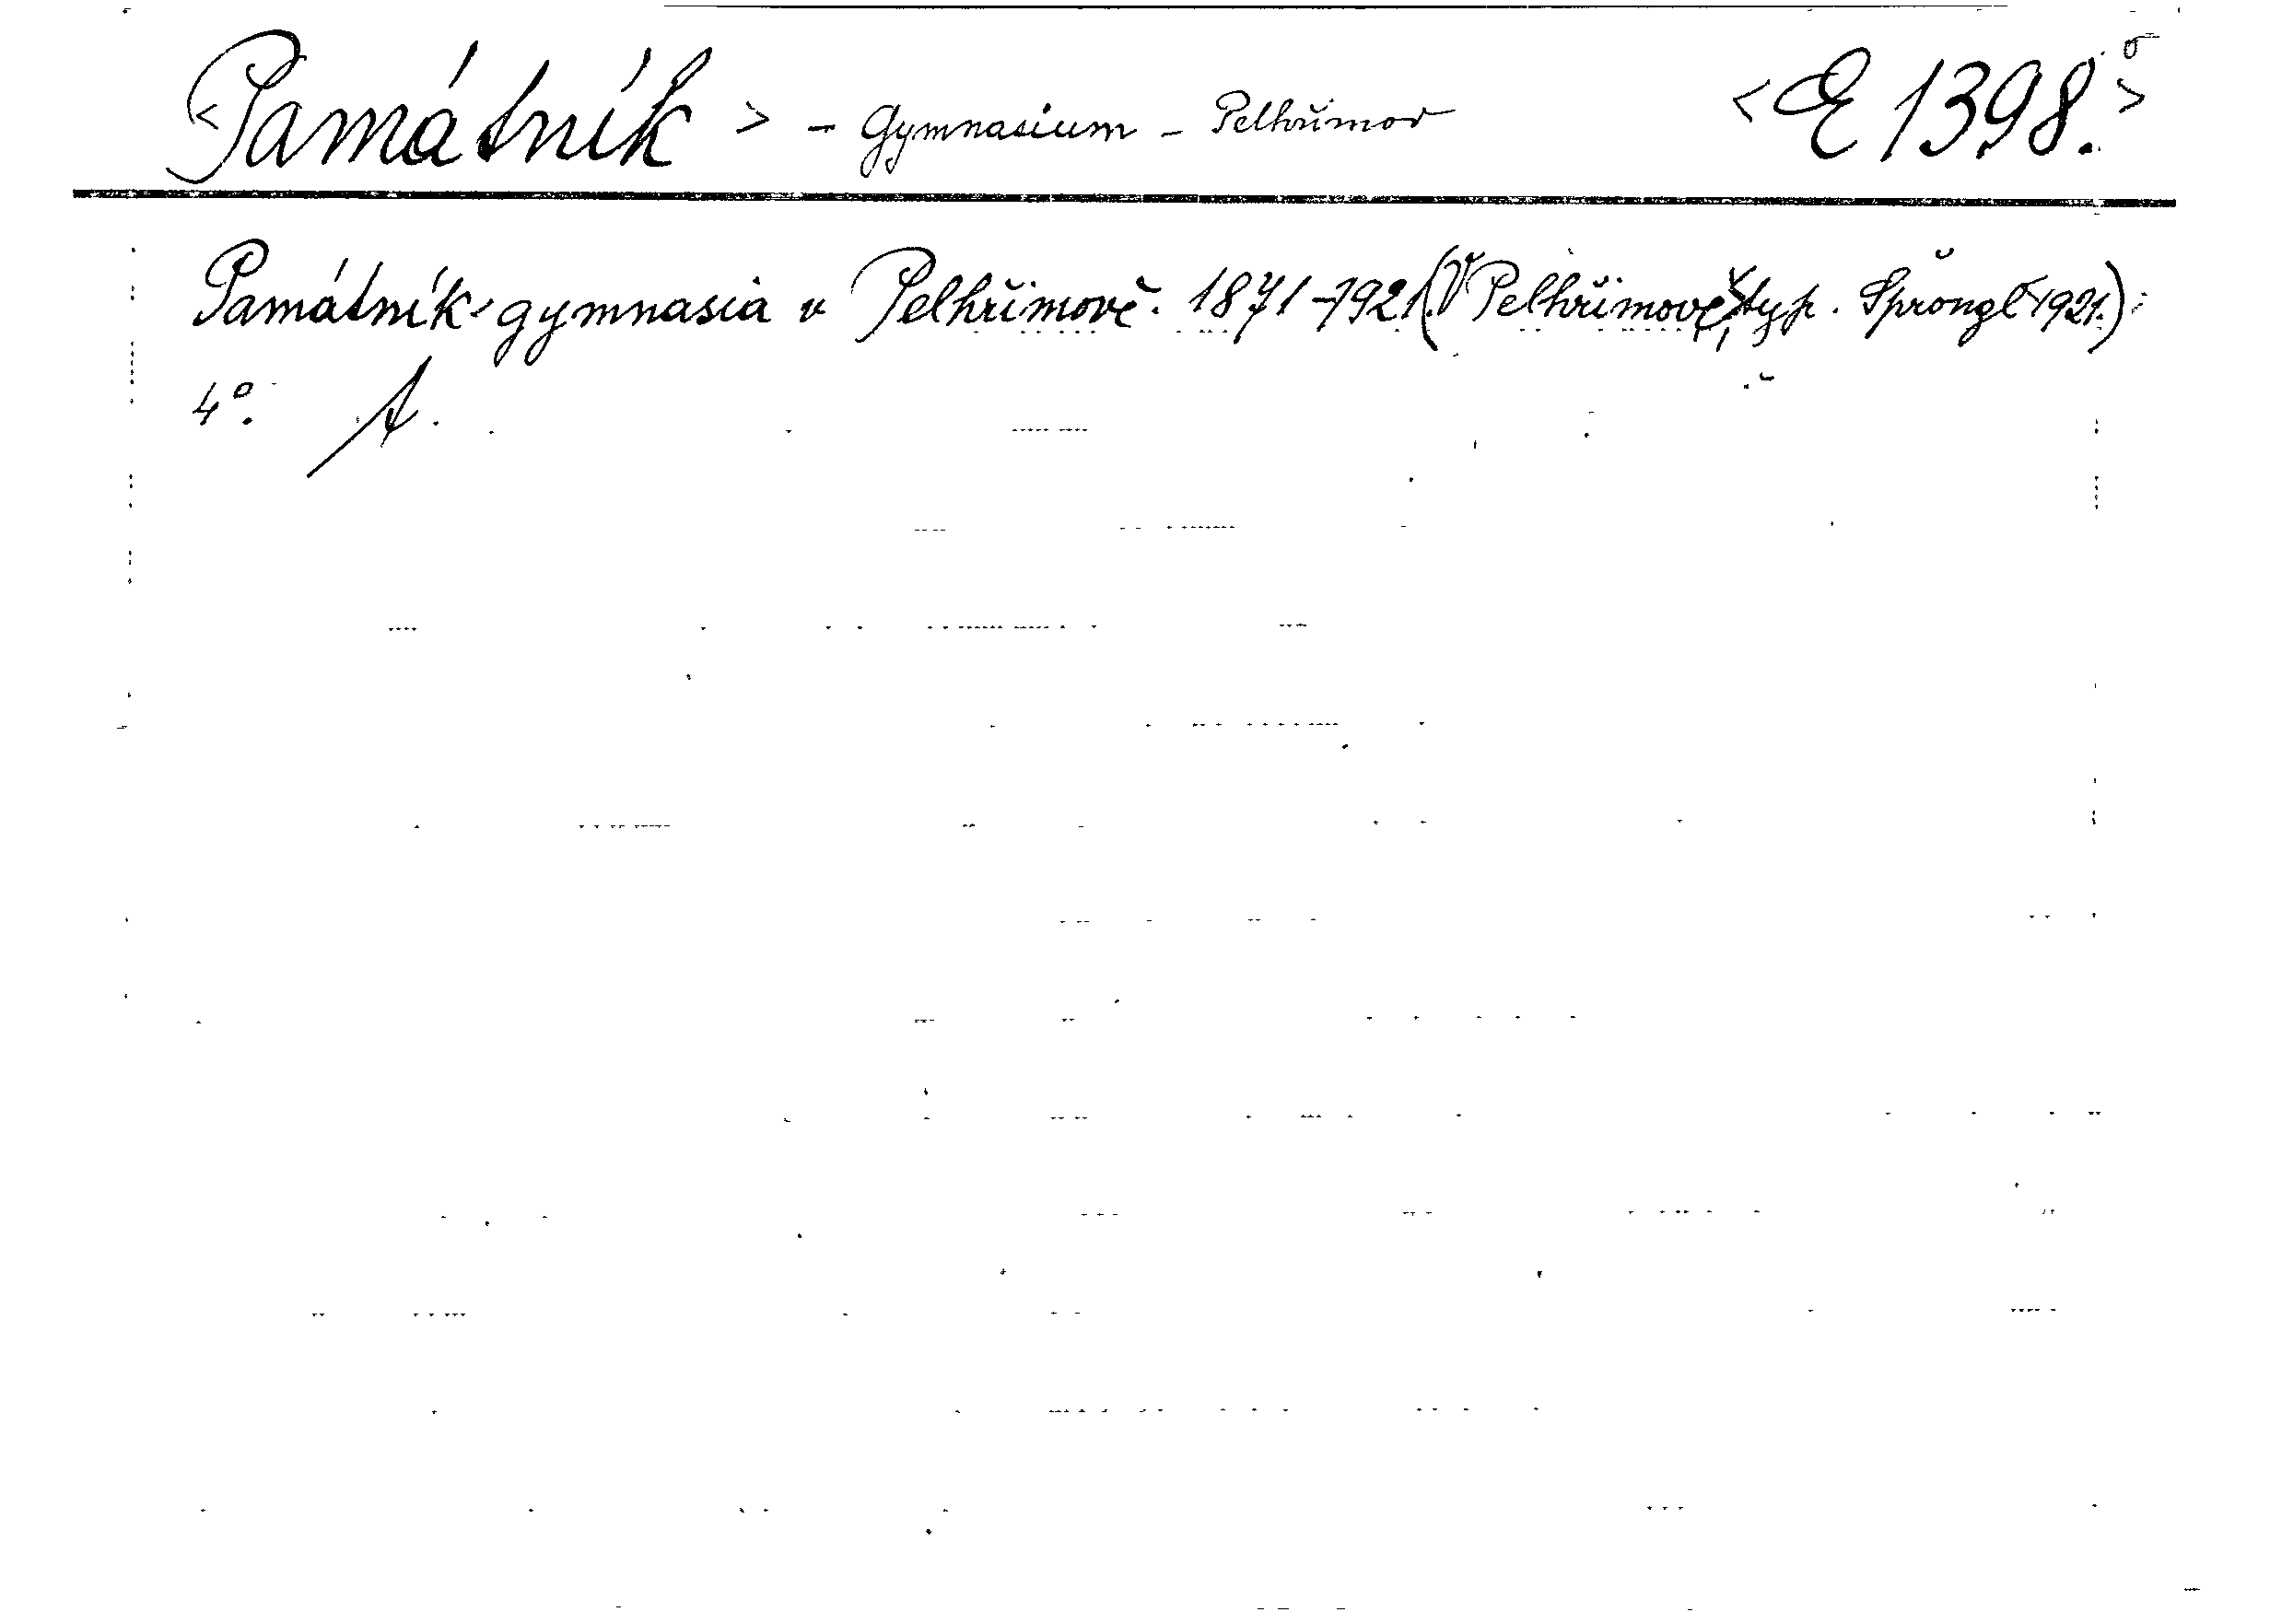 <Památník> - Gymnasium - Pelhřimov <E 1398.>
Památník gymnasia v Pelhřimově. 1871-1921. (V Pelhřimově, typ. Šprongl 1921.)
4°. A.